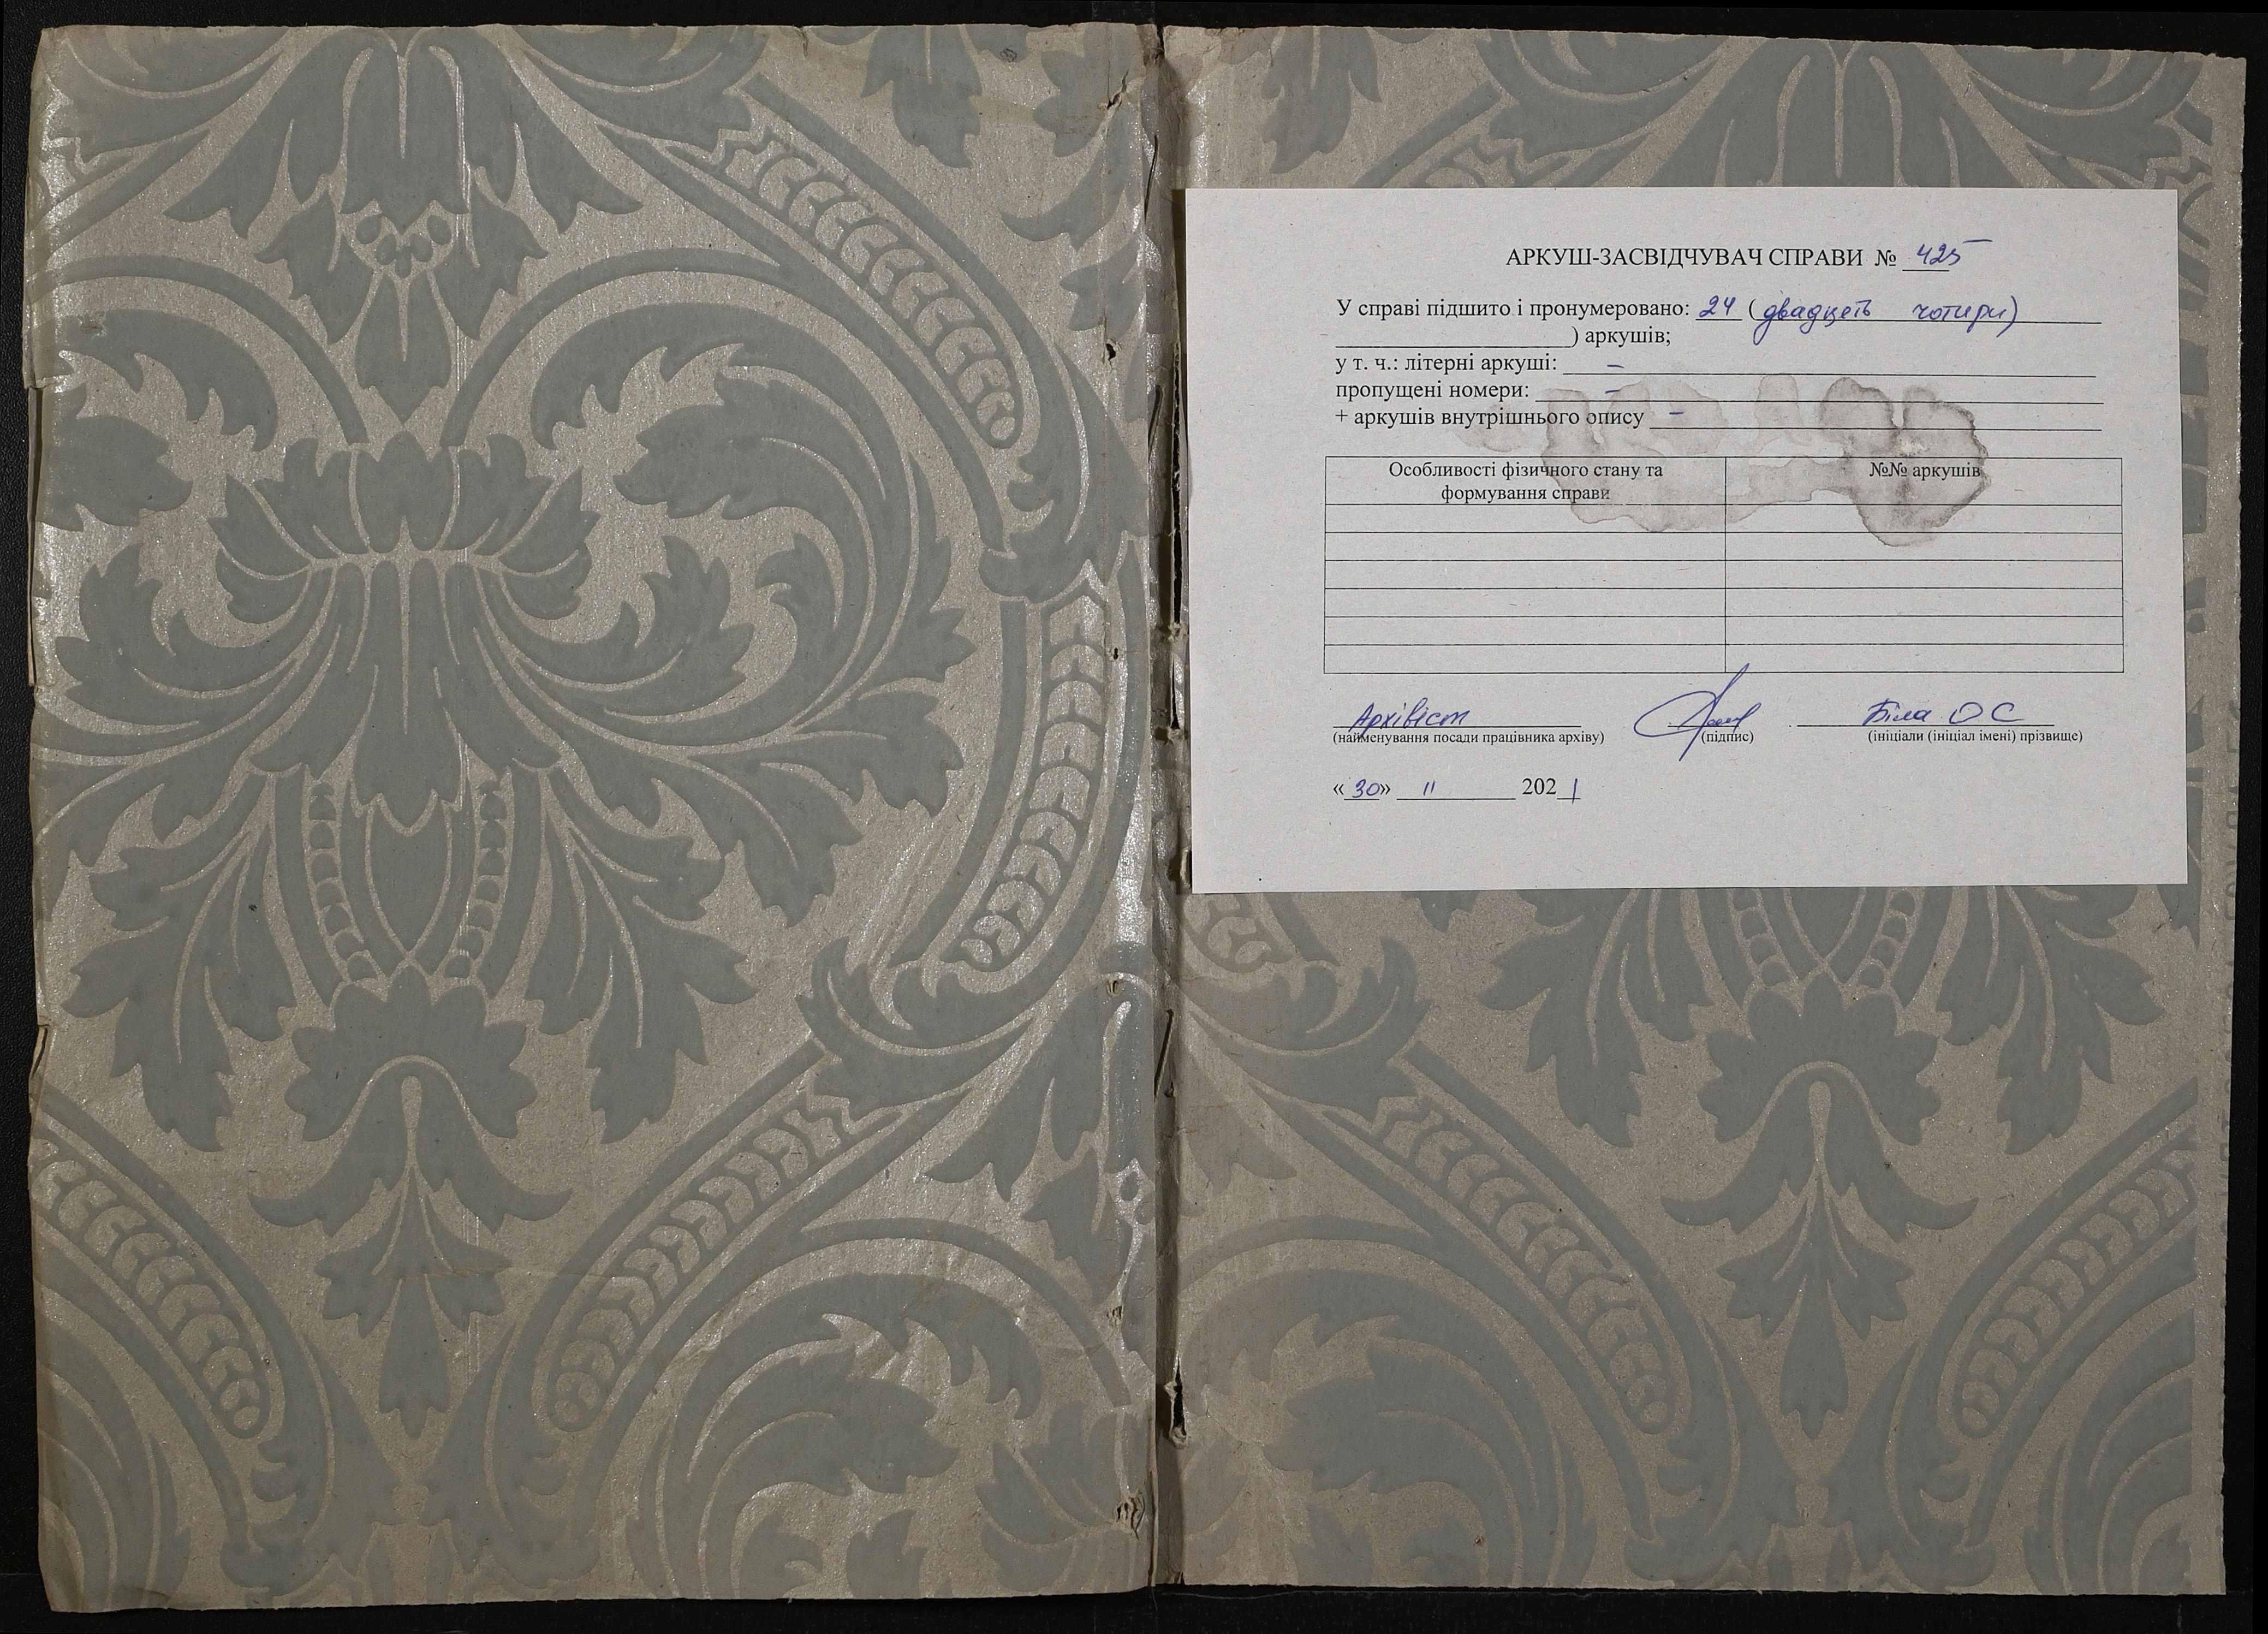 АРКУШ-ЗАСВІДЧУВАЧ СПРАВИ № 425
У справі підшито і пронумеровано: 24 (двадцять чотири)
) аркушів;
у т. ч.: літерні аркуші: –
пропущені номери: –
+ аркушів внутрішнього опису –
Особливості фізичного стану та формування справи
№№ аркушів
Архівіст Біла О С
(найменування посади працівника архіву) (підпис) (ініціали (ініціал імені) прізвище)
«30» 11 2021